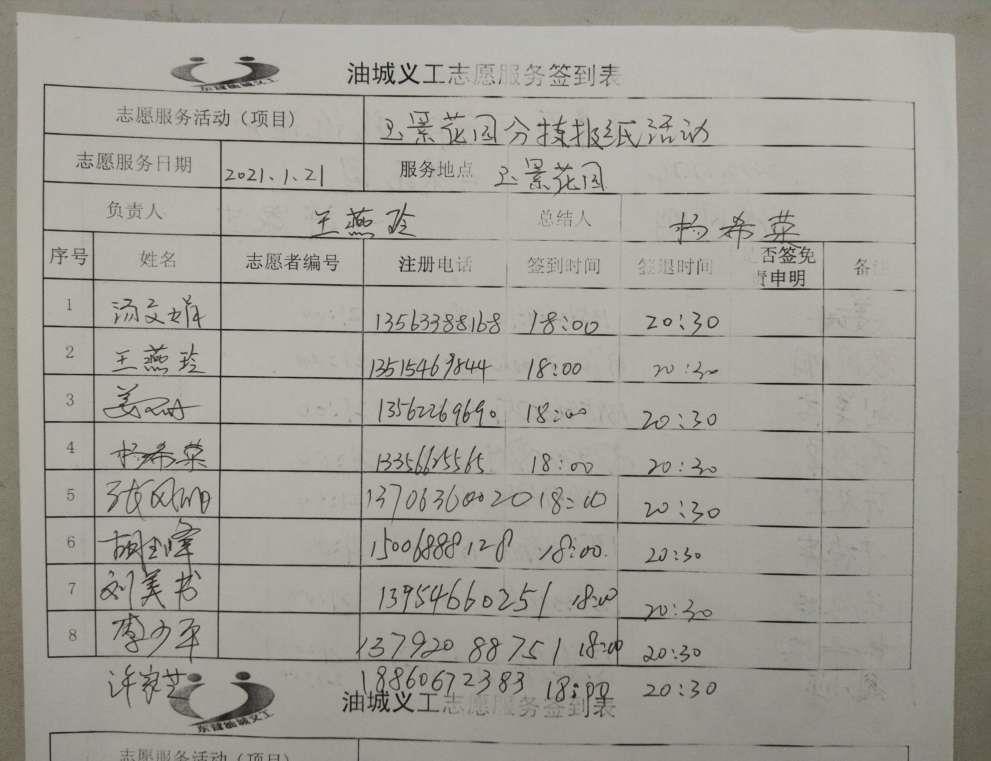 油城义工志愿服务签到表
志愿服务活动（项目） 玉景花园分拣报纸活动
志愿服务日期 2021.1.21 服务地点 玉景花园
负责人 王燕玲 总结人 杨希荣
序号 姓名 志愿者编号 注册电话 签到时间 签退时间 是否签免责申明 备注
1 汤文娟 13563388168 18:00 20:30
2 王燕玲 13515469844 18:00 20:30
3 姜 13562269690 18:00 20:30
4 杨希荣 13356625565 18:00 20:30
5 张凤 13706360020 18:00 20:30
6 胡玉峰 15006888128 18:00 20:30
7 刘美书 13954660251 18:00 20:30
8 李少平 13792088751 18:00 20:30
许家芝 18860672383 18:00 20:30
油城义工志愿服务签到表
志愿服务活动（项目）